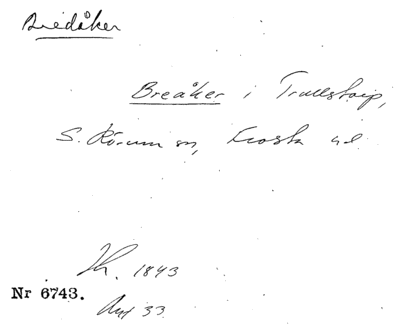 Bredåker
Breåker i Trullstorp,
S. Rörum sn, Frosta hd
Th. 1843
Nr 6743.
Avf 33